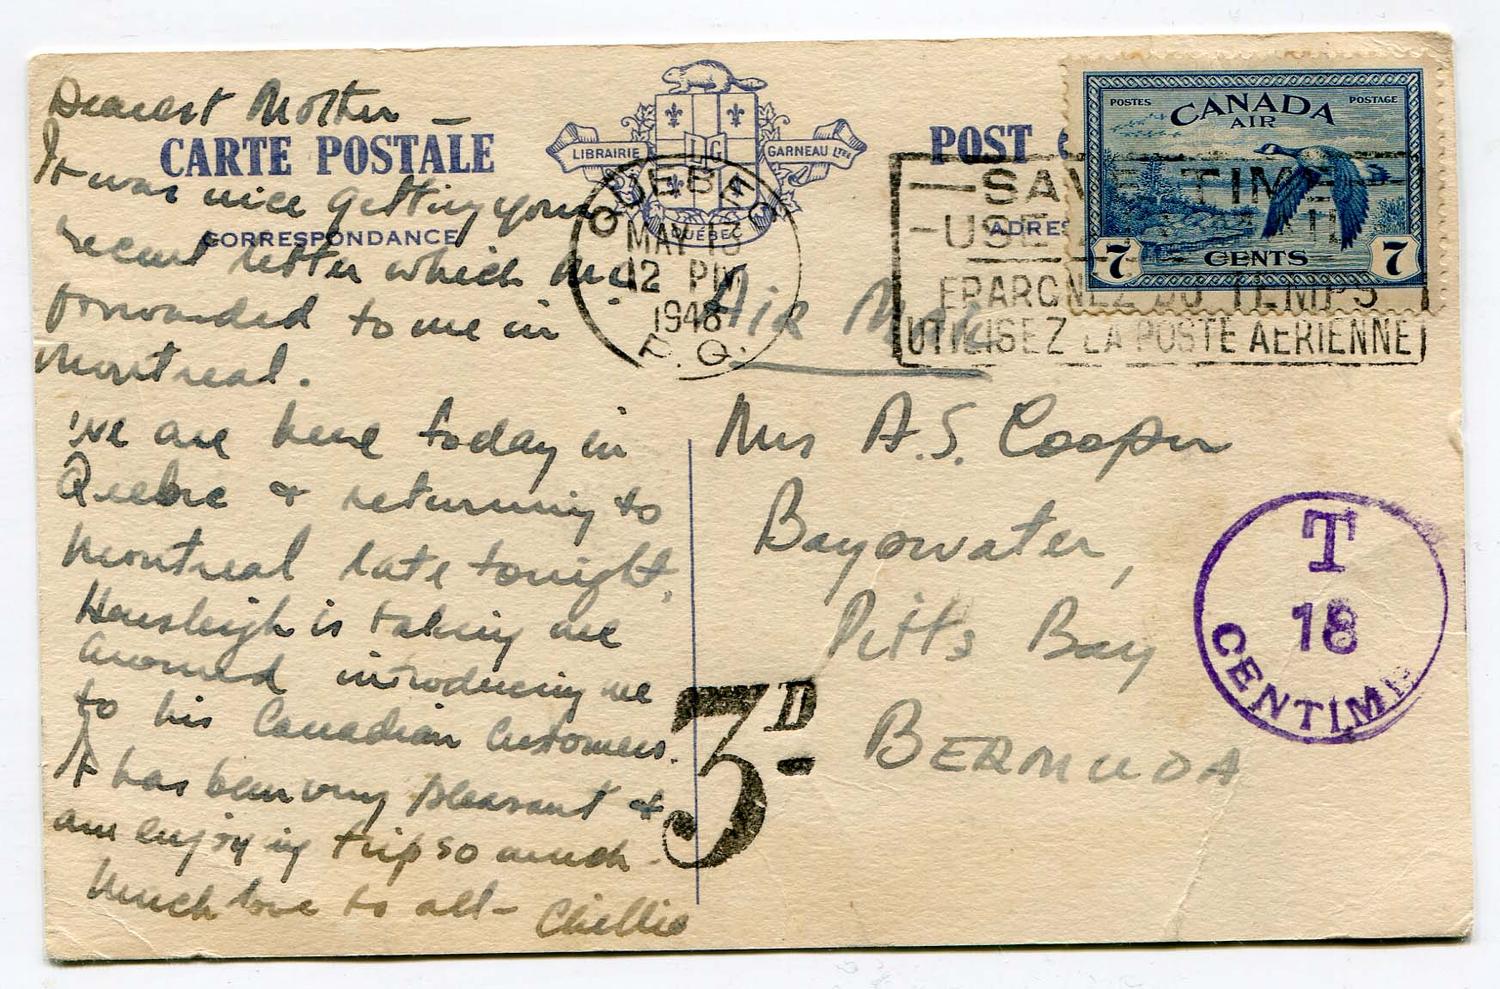 Dearest Mother –
CARTE POSTALE
CORRESPONDANCE
LIBRAIRIE LG GARNEAU LTÉE
QUÉBEC
POST
ADRES
POSTES CANADA POSTAGE
AIR
7 CENTS 7
QUEBEC
MAY 13
12 PM
1948
P.Q.
SAVE TIME
USE AIR MAIL
EPARGNEZ DU TEMPS
UTILISEZ LA POSTE AERIENNE
It was nice getting your
recent letter which
forwarded to me in
Montreal.
We are here today in
Quebec & returning to
Montreal late tonight.
is taking me
around introducing me
to his Canadian Customers.
It has been very pleasant &
am enjoying trip so much.
Much love to all –
Air Mail
Mrs A.S. Cooper
Bayswater,
Pitts Bay
BERMUDA
T
18
CENTIMES
3D